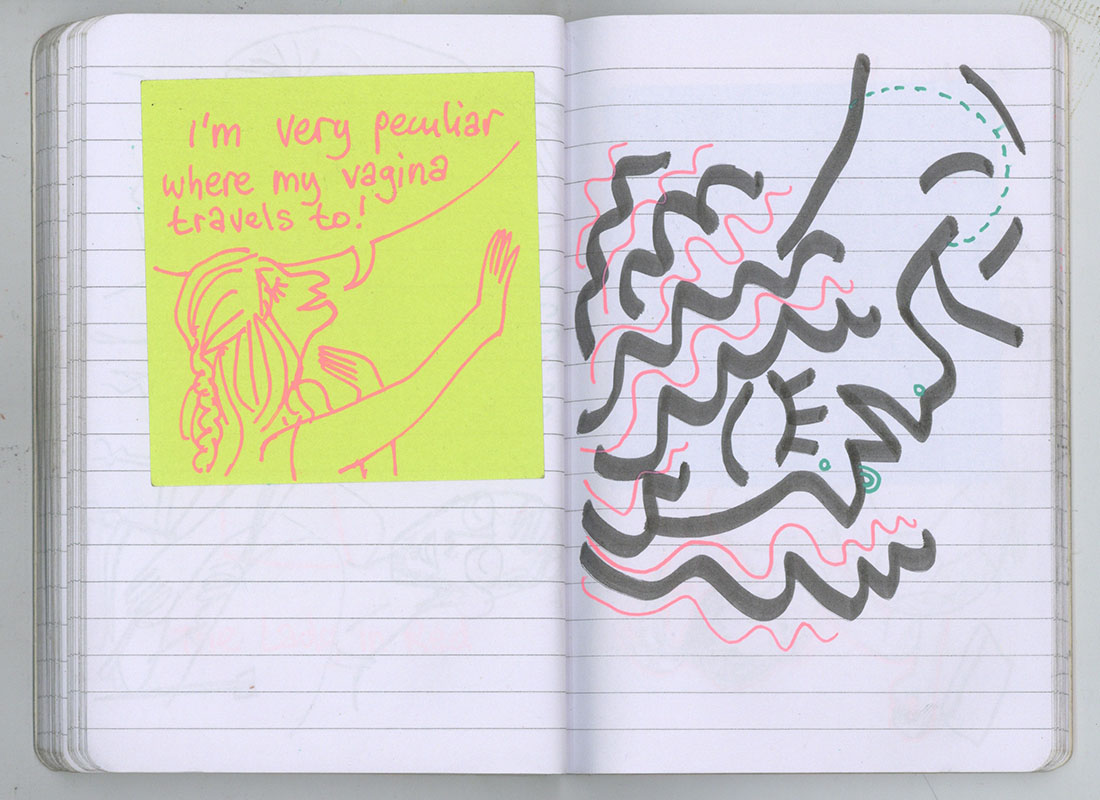 I'm very peculiar
where my vagina
travels to!